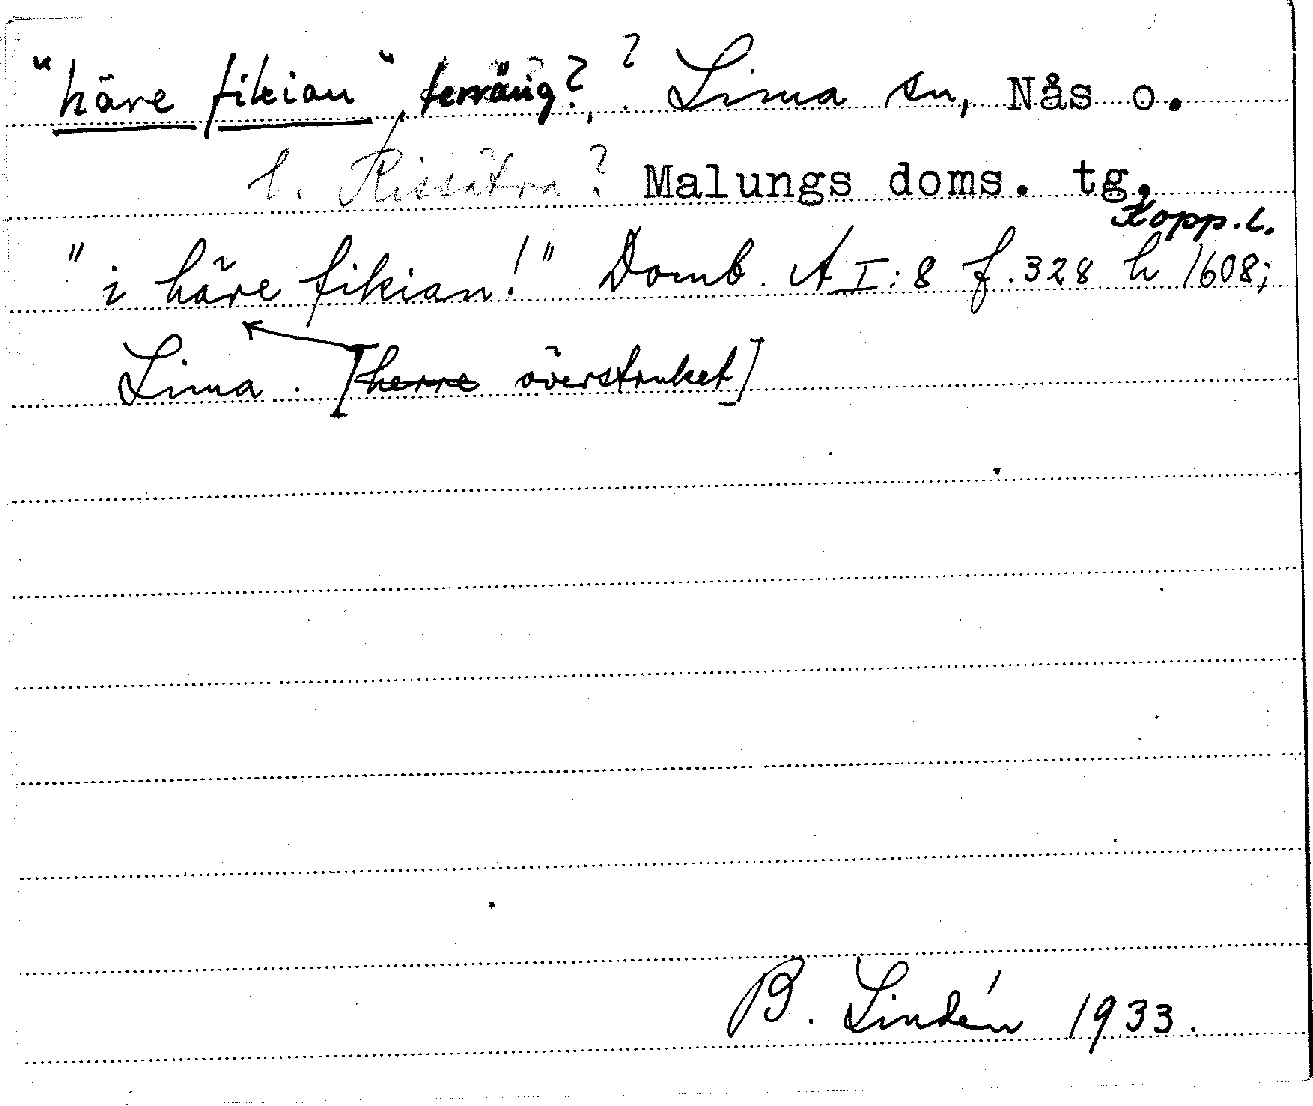 "häre fikian", terräng?, ? Lima sn, Nås o.
l. Rissätra? Malungs doms. tg.
Kopp.l.
"i häre fikian!" Domb. A I:8 f.328 h 1608;
Lima. [herre överstruket]
B. Lindén 1933.